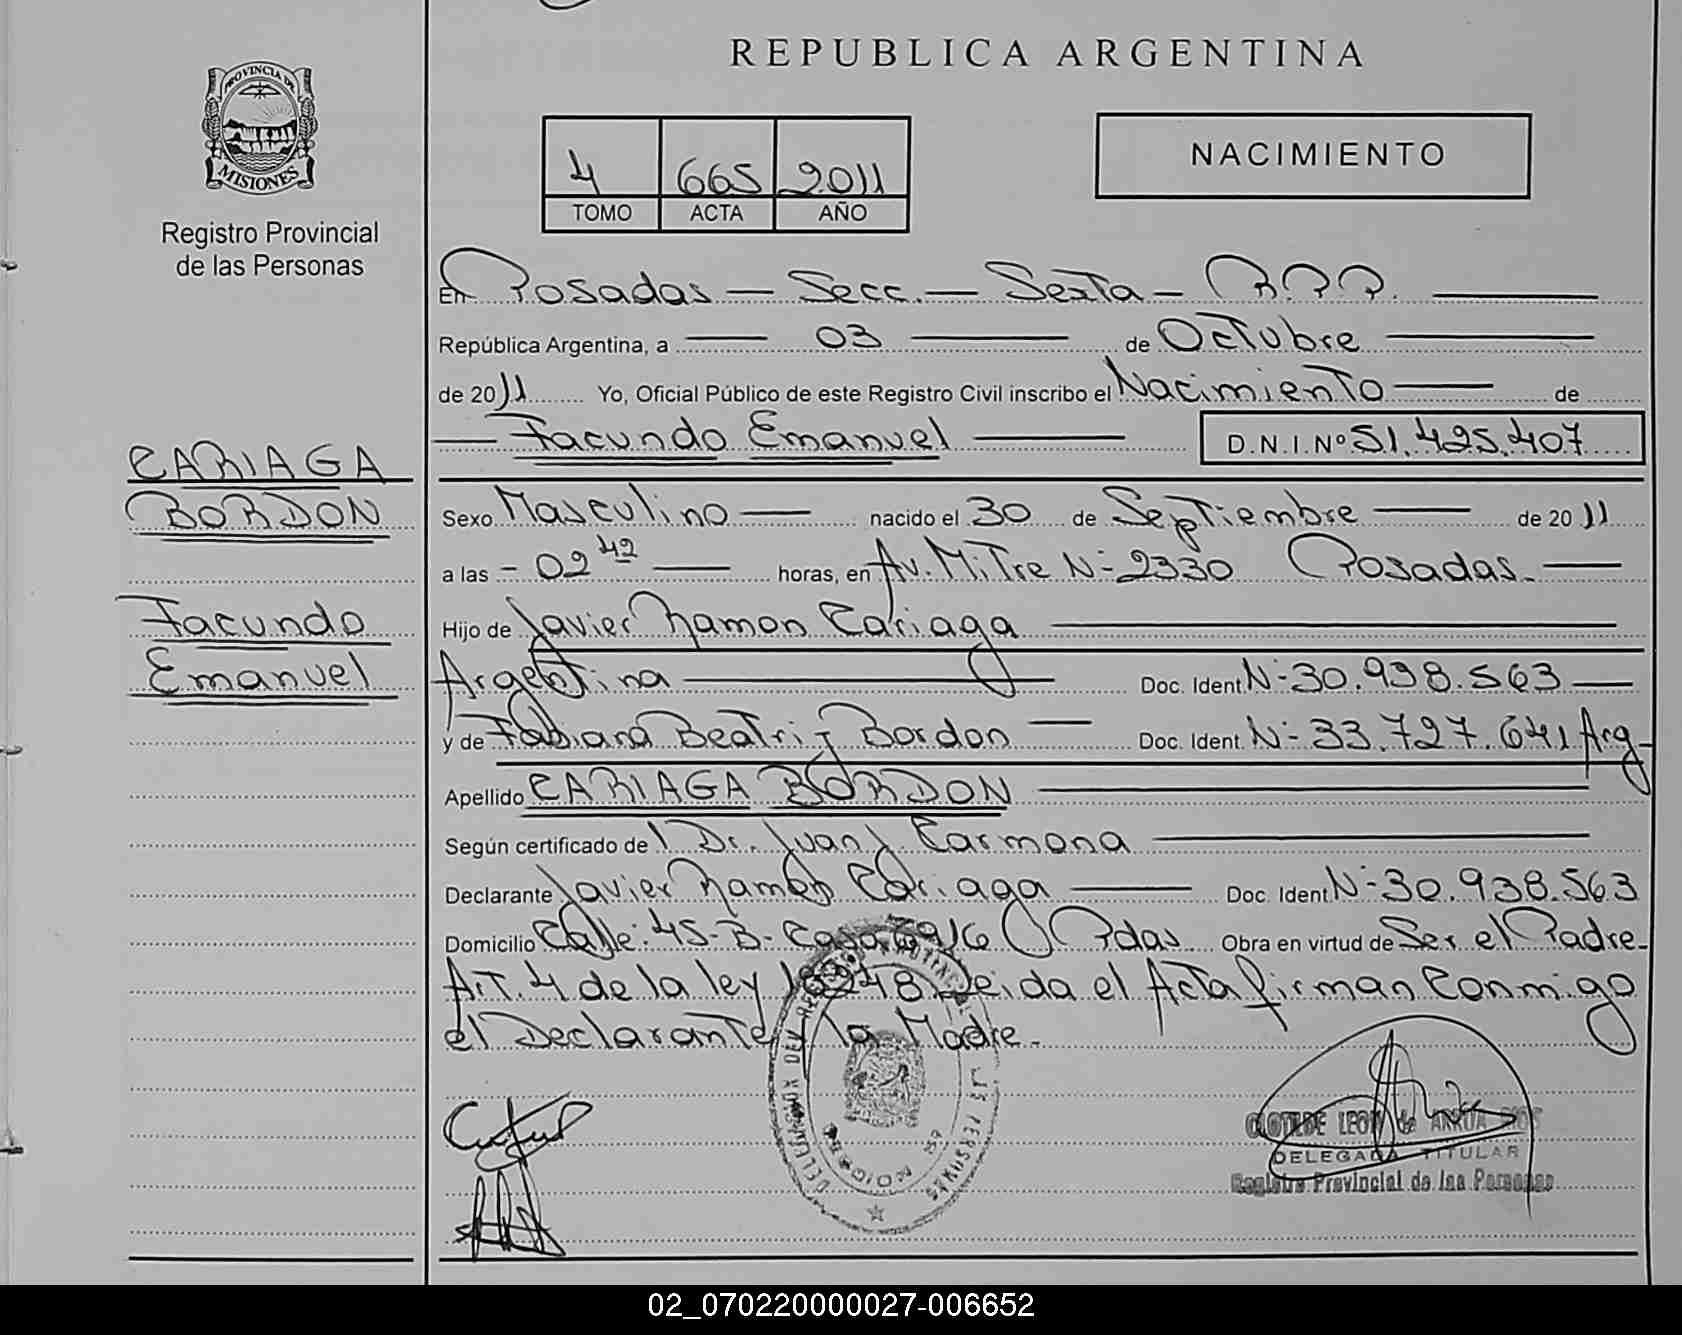 REPUBLICA ARGENTINA
PROVINCIA DE
MISIONES
Registro Provincial
de las Personas
4 665 2011
TOMO ACTA AÑO
NACIMIENTO
En Posadas — Secc. — Sexta — R.P.P. —
República Argentina, a — 03 — de Octubre —
de 2011 Yo, Oficial Público de este Registro Civil inscribo el Nacimiento — de
— Facundo Emanuel — D.N.I.Nº 51.425.407
CARIAGA
BORDON
Facundo
Emanuel
Sexo Masculino — nacido el 30 de Septiembre — de 2011
a las - 02 42 — horas, en Av. Mitre N- 2330 Posadas. —
Hijo de Javier Ramon Cariaga —
Argentina — Doc. Ident. N- 30.938.563 —
y de Fabiana Beatriz Bordon — Doc. Ident. N- 33.727.641 Arg-
Apellido CARIAGA BORDON —
Según certificado de Dr. Juan J. Carmona —
Declarante Javier Ramon Cariaga — Doc. Ident. N- 30.938.563
Domicilio Calle: 45-B- Casa Pdas Obra en virtud de Ser el Padre-
Art. 4 de la ley 18248 Leida el Acta firman Conmigo
el Declarante y la Madre.
CLOTILDE LEON de
DELEGADA TITULAR
Registro Provincial de las Personas
02_070220000027-006652